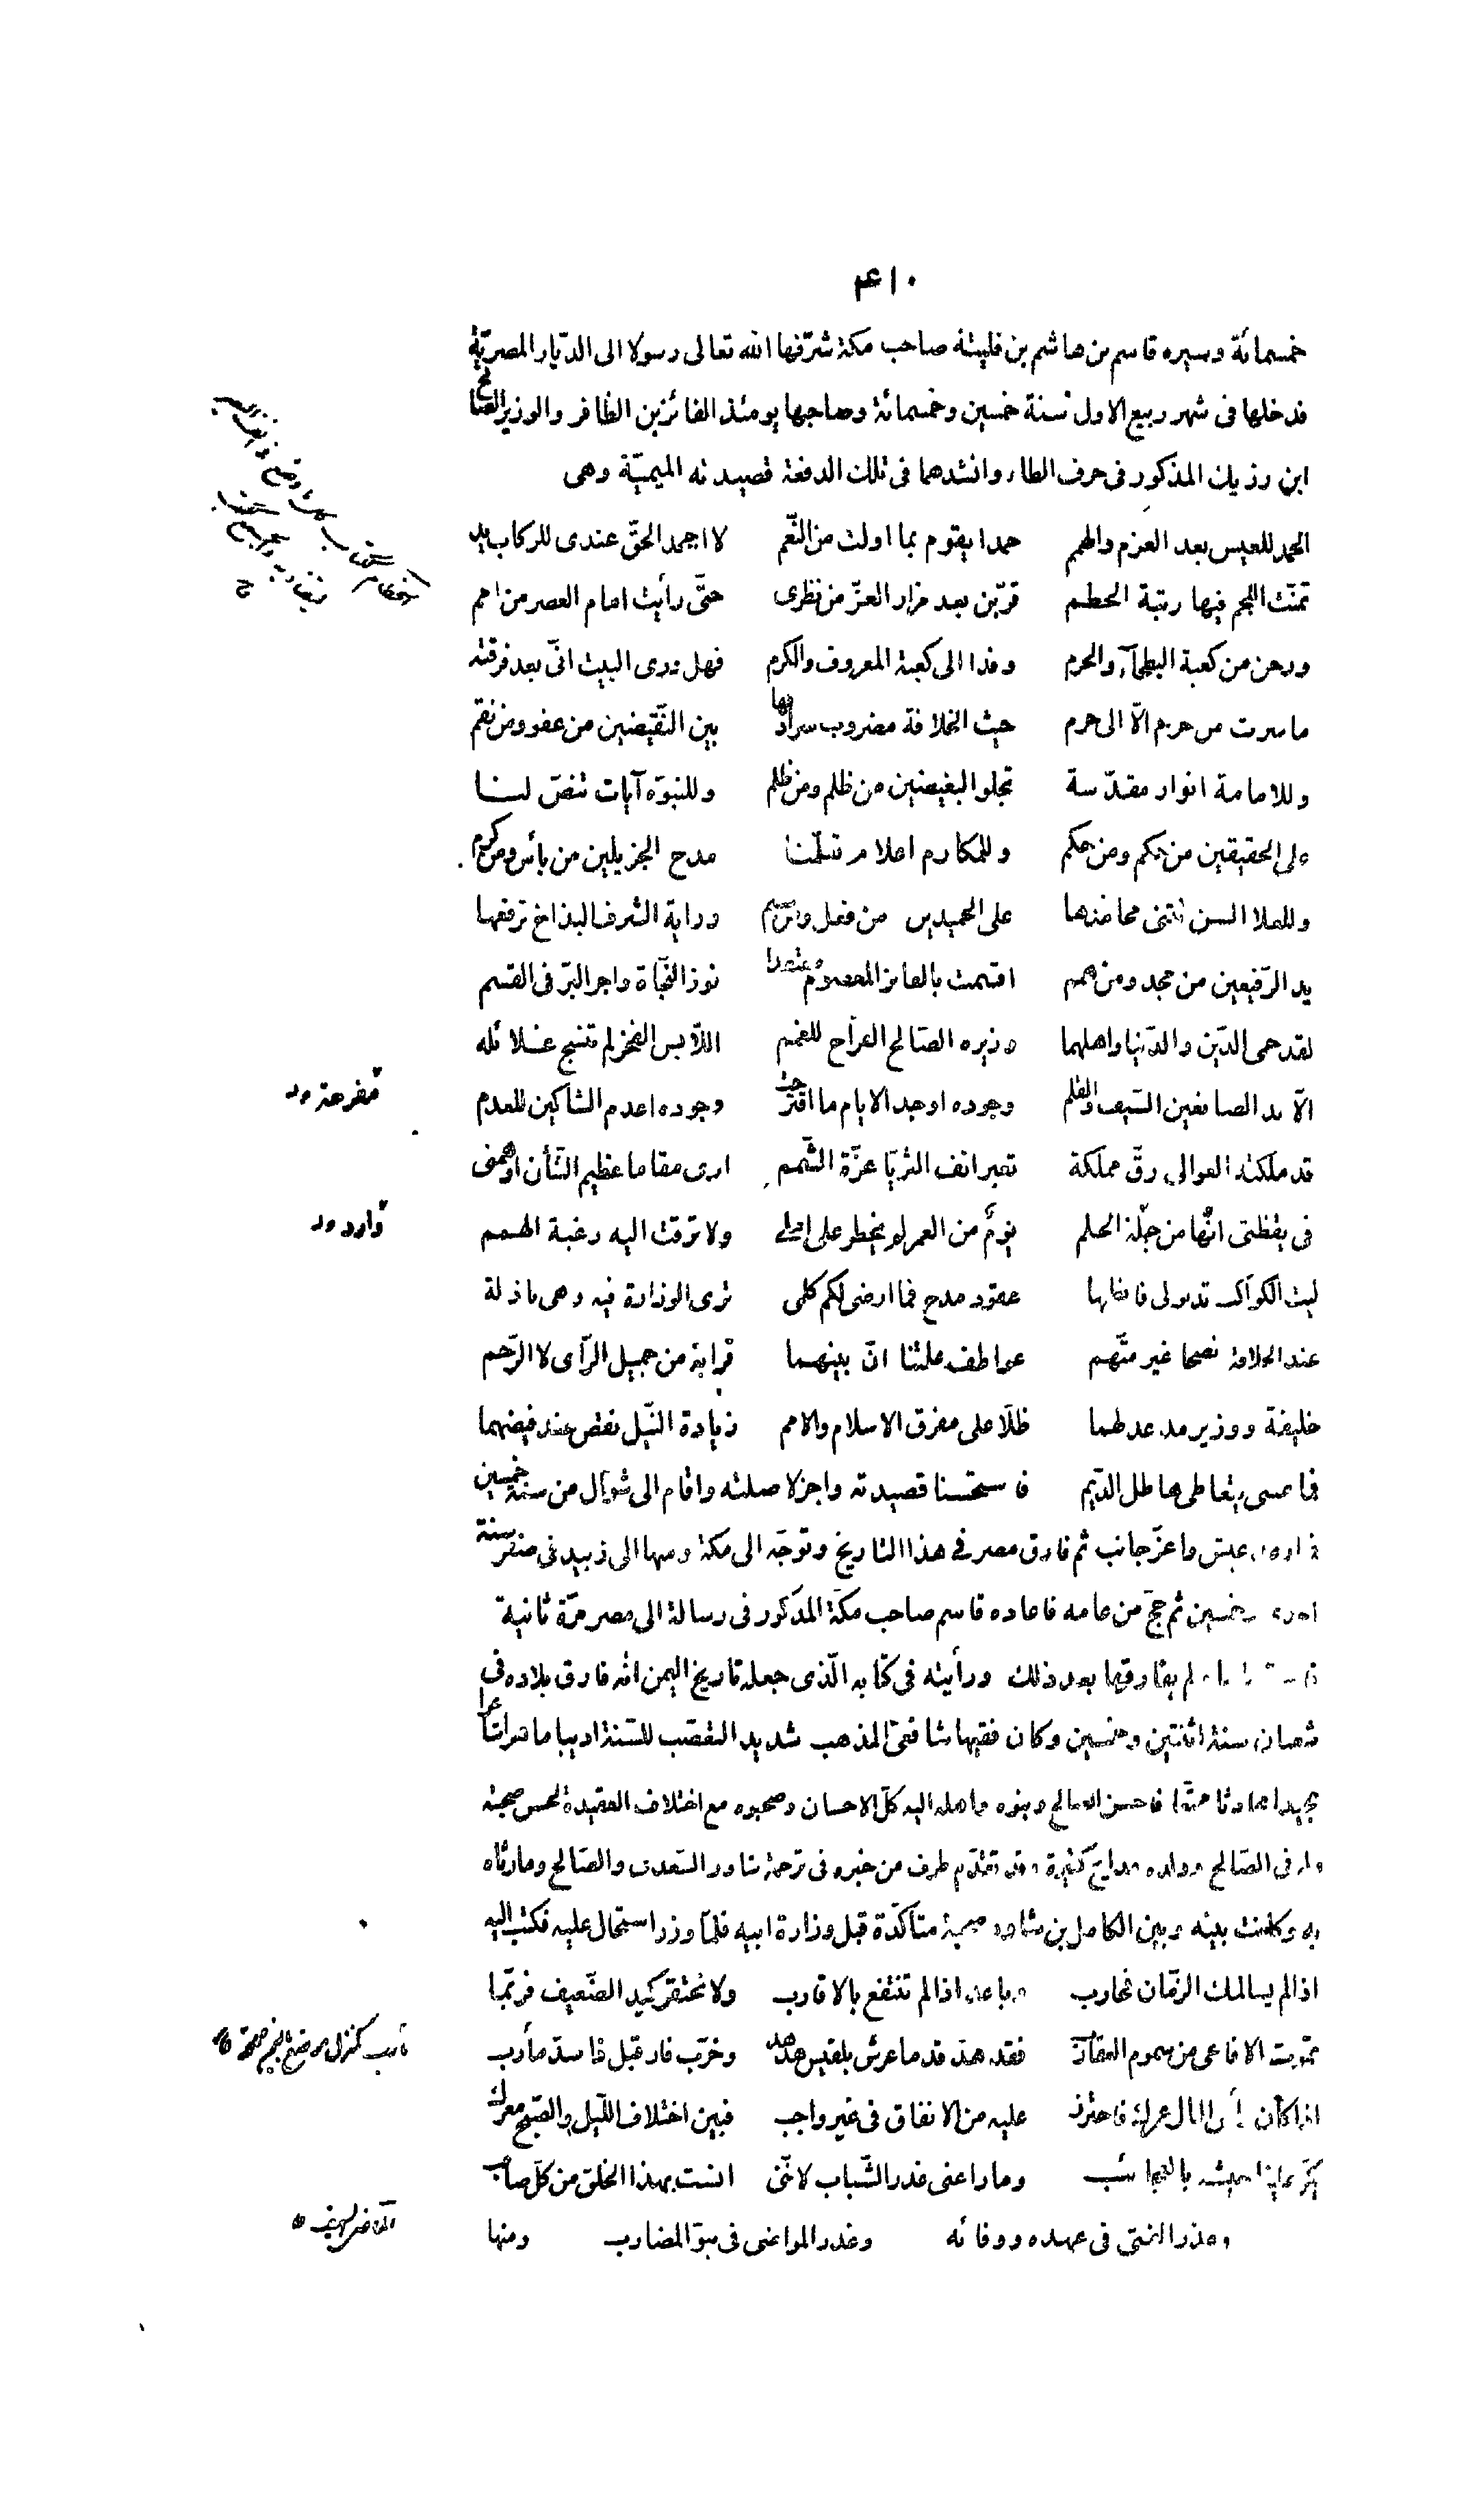 ٤١٠
خمسمائة وسيره قاسم بن هاشم بن فليتة صاحب مكة شرّفها الله تعالى رسولا الى الدّيار المصريّة
فدخلها فى شهر ربيع الاول سنة خمسين وخمسمائة وصاحبها يومئذ الفائز بن الظافر والوزير الصالح
ابن رزيك المذكور فى حرف الطاء وانشدهما فى تلك الدفعة قصيدته الميميّة وهى
الحمد للعيس بعد العزم والهمم حمدا يقوم بما اولت من النّعم لا اجحد الحقّ عندى للركاب يد
تمنّت اللجم فيها رتبة الخطم قرّبن بعد مزار العزّ من نظرى حتّى رأيت امام العصر من امم
ورحن من كعبة البطحآء والحرم وفدا الى كعبة المعروف والكرم فهل درى البيت انّى بعد فرقته
ما سرت من حرم الّا الى حرم حيث الخلافة مضروب سرادقها بين النّقيضين من عفو ومن نقم
وللامامة انوار مقدّسة تجلو البغيضين من ظلم ومن ظلم وللنبوّة آيات تنصّ لنا
على الحقيقين من حكم ومن حكم وللمكارم اعلام تعلّمنا مدح الجزيلين من بأس ومن كرم
وللعلا السن تثنى محامدها على الحميدين من فعل ومن شيم وراية الشرف البذاخ ترفعها
يد الرّفيعين من مجد ومن همم اقسمت بالفائز المعصوم معتقدا فوز النّجاة واجر البرّ فى القسم
لقد حمى الدّين والدّنيا واهلهما وزيره الصّالح الفرّاج للغمم اللّابس الفخر لم تنسج غلائله
الّا يد الصانعين السّيف والقلم وجوده اوجد الايام ما اقترحت وجوده اعدم الشاكين للعدم
قد ملكته العوالى رقّ مملكة تعير انف الثريّا عزّة الشّمم ارى مقاما عظيم الشّأن اوهمنى
فى يقظتى انّها من جملة الحلم يوم من العمر لم يخطر على املى ولا ترقت اليه رغبة الهمم
ليت الكواكب تدنو لى فانظمها عقود مدح فما ارضى لكم كلمى ترى الوزارة فيه وهى باذلة
عند الخلافة نصحا غير متّهم عواطف علمتنا انّ بينهما قرابة من جميل الرّأى لا الرّحم
خليفة ووزير مد عدلهما ظلّا على مفرق الاسلام والامم زيادة النّيل نقص عند فيضهما
فما عسى يتعاطى هاطل الدّيم فاستحسنا قصيدته واجزلا صلته واقام الى شوّال من سنة خمسين
فى ارغد عيش واعزّ جانب ثم فارق مصر فى هذا التاريخ وتوجّه الى مكة ومنها الى زبيد فى صفر سنة
احدى وخمسين ثم حجّ من عامه فاعاده قاسم صاحب مكّة المذكور فى رسالة الى مصر مرّة ثانية
لم يفارقها بعد ذلك ورأيته فى كتابه الّذى جعله تاريخ اليمن انّه فارق بلاده فى
شعبان سنة اثنتين وخمسين وكان فقيها شافعىّ المذهب شديد التعصّب للسّنة اديبا ماهرا شاعرا
مجيدا فاحسن الصالح وبنوه واهله اليه كلّ الاحسان وصحبوه مع اختلاف العقيدة لحسن صحبته
وله فى الصّالح وولده مدايح كثيرة وقد تقدّم طرف من خبره فى ترجمة شاور السّعدى والصّالح وما رثاه
به وكانت بينه وبين الكامل بن شاور صحبة متأكّدة قبل وزارة ابيه فلمّا وزر استحال عليه فكتب اليه
اذا لم يسالمك الزمّان فحارب وباعد اذا لم تنتفع بالاقارب ولا تحتقر كيد الضّعيف فربّما
تموت الافاعى من سموم العقارب فقد هدّ قدما عرش بلقيس هدهد وخرّب فار قبل ذا سدّ مأرب
اذا كان رأس المال عمرك فاحترز عليه من الانفاق فى غير واجب فبين اختلاف اللّيل والصّبح معرك
يكرّ علينا جيشه بالعجائب وما راعنى غدر الشّباب لانّنى انست بهذا الخلق من كلّ صاحب
وغدر الفتى فى عهده ووفائه وغدر المواضى فى نبوّ المضارب ومنها